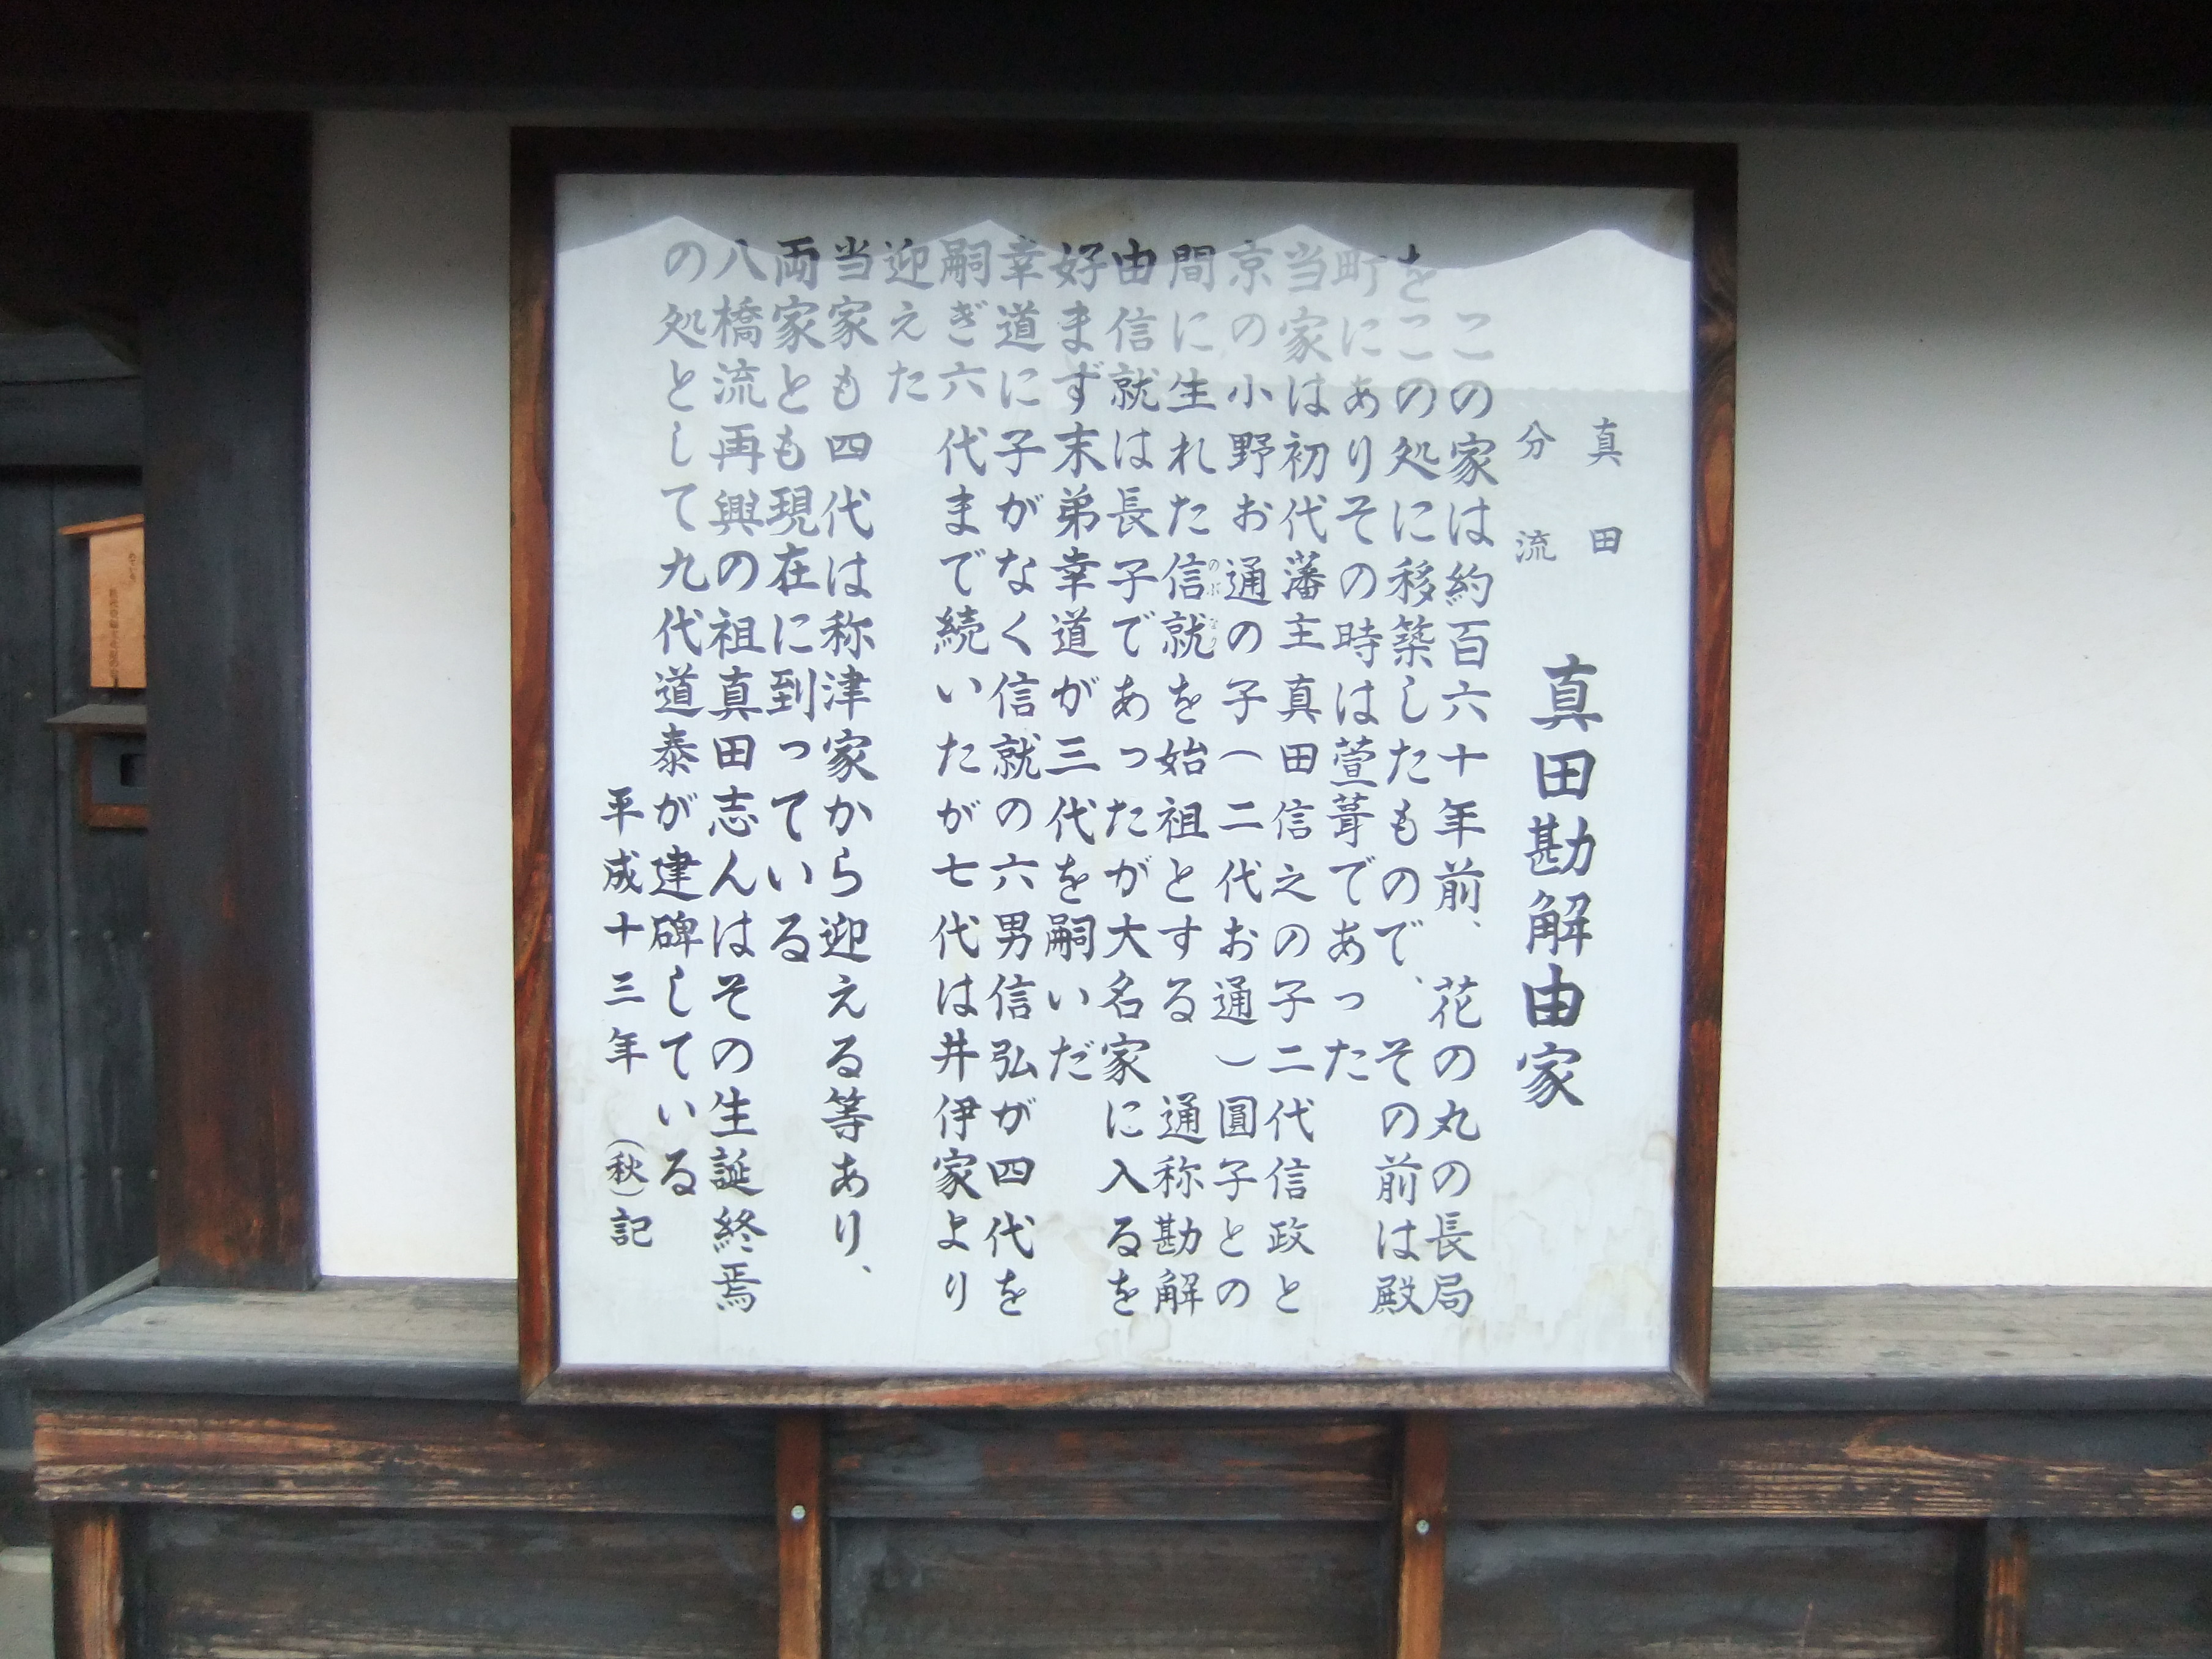 真田
分流
真田勘解由家
この家は約百六十年前、花の丸の長局
をこの処に移築したもので、その前は殿
町にありその時は萱葺であった
当家は初代藩主真田信之の子二代信政と
京の小野お通の子(二代お通)圓子との
間に生れた信就を始祖とする 通称勘解
のぶ なり
由信就は長子であったが大名家に入るを
好まず末弟幸道が三代を嗣いだ
幸道に子がなく信就の六男信弘が四代を
嗣ぎ六代まで続いたが七代は井伊家より
迎えた
当家も四代は称津家から迎える等あり、
両家とも現在に到っている
八橋流再興の祖真田志んはその生誕終焉
の処として九代道泰が建碑している
平成十三年 (秋)記